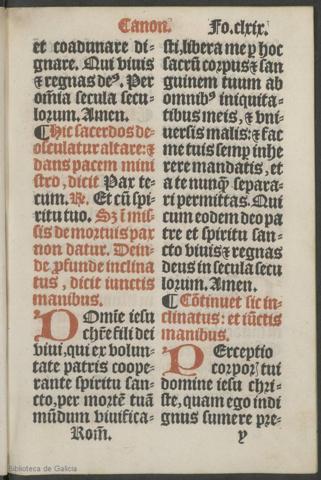 Canon. Fo.clxix.
et coadunare di-
gnare. Qui viuis
⁊ regnas deꝰ. Per
om̃ia secula secu-
lorum. Amen.
¶ Hic sacerdos de-
osculatur altare: ⁊
dans pacem mini
stro, dicit Pax te-
cum. ℟. Et cũ spi-
ritu tuo. Sꝫ ĩ mis-
sis de mortuis pax
non datur. Dein-
de ꝓfunde inclina
tus, dicit iunctis
manibus.
Domĩe iesu
chr̃e fili dei
viui, qui ex volun-
tate patris coope-
rante spiritu san-
cto, per mortẽ tuã
mũdum viuifica-
sti, libera me ꝑ hoc
sacrũ corpus ⁊ san
guinem tuum ab
omnibꝰ iniquita-
tibus meis, ⁊ vni-
uersis malis: ⁊ fac
me tuis semꝑ inhe
rere mandatis, et
a te nunq̃ separa-
ri permittas. Qui
cum eodem deo pa
tre et spiritu san-
cto viuis ⁊ regnas
deus in secula secu
lorum. Amen.
¶ Cõtinuet sic in-
clinatus: et iũctis
manibus.
PErceptio
corporꝭ tui
domine iesu chri-
ste, quam ego indi
gnus sumere pre-
Rom̃. y
Biblioteca de Galicia